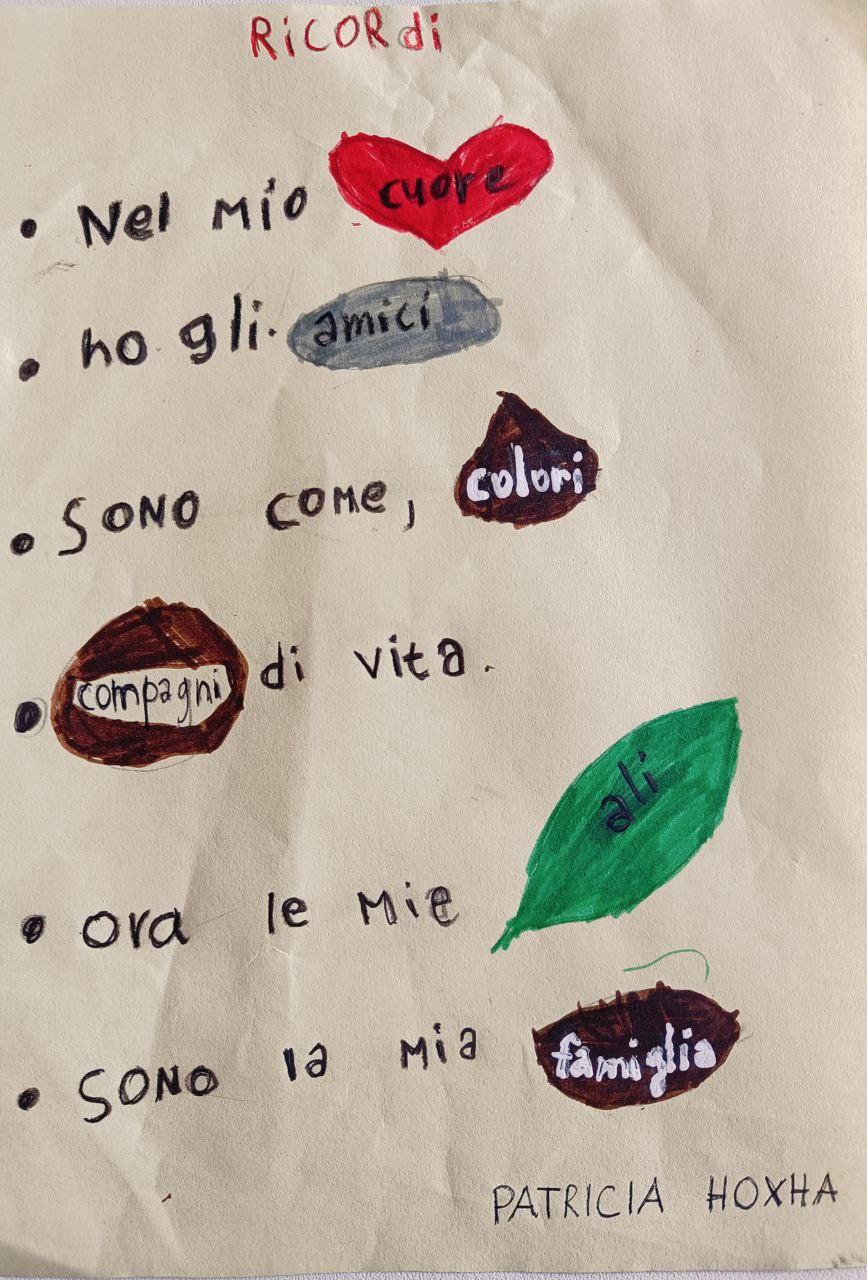 RiCORdi
• Nel Mio cuore
• ho gli. amici
• SONO COMe, colori
• compagni di vita.
• ora le Mie ali
• SONO la Mia famiglia
PATRICIA HOXHA